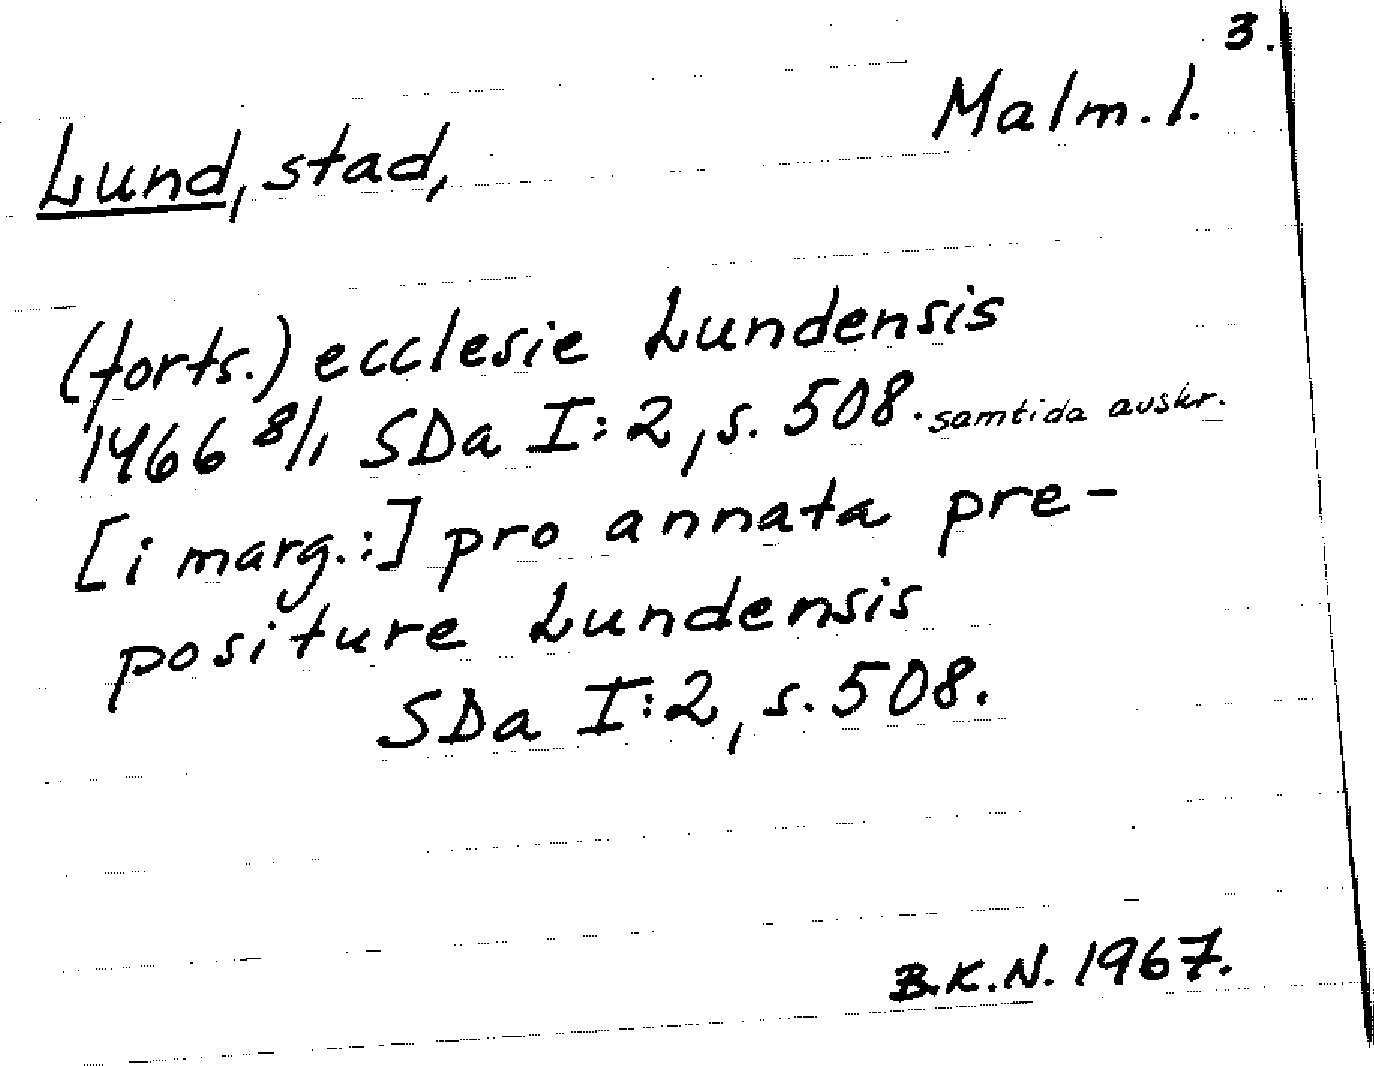 3.
Malm. l.
Lund, stad,
(forts.) ecclesie Lundensis
1466 8/1 SDa I:2, s. 508. samtida avskr.
[i marg.:] pro annata pre-
positure Lundensis
SDa I:2, s. 508.
B.K.N. 1967.